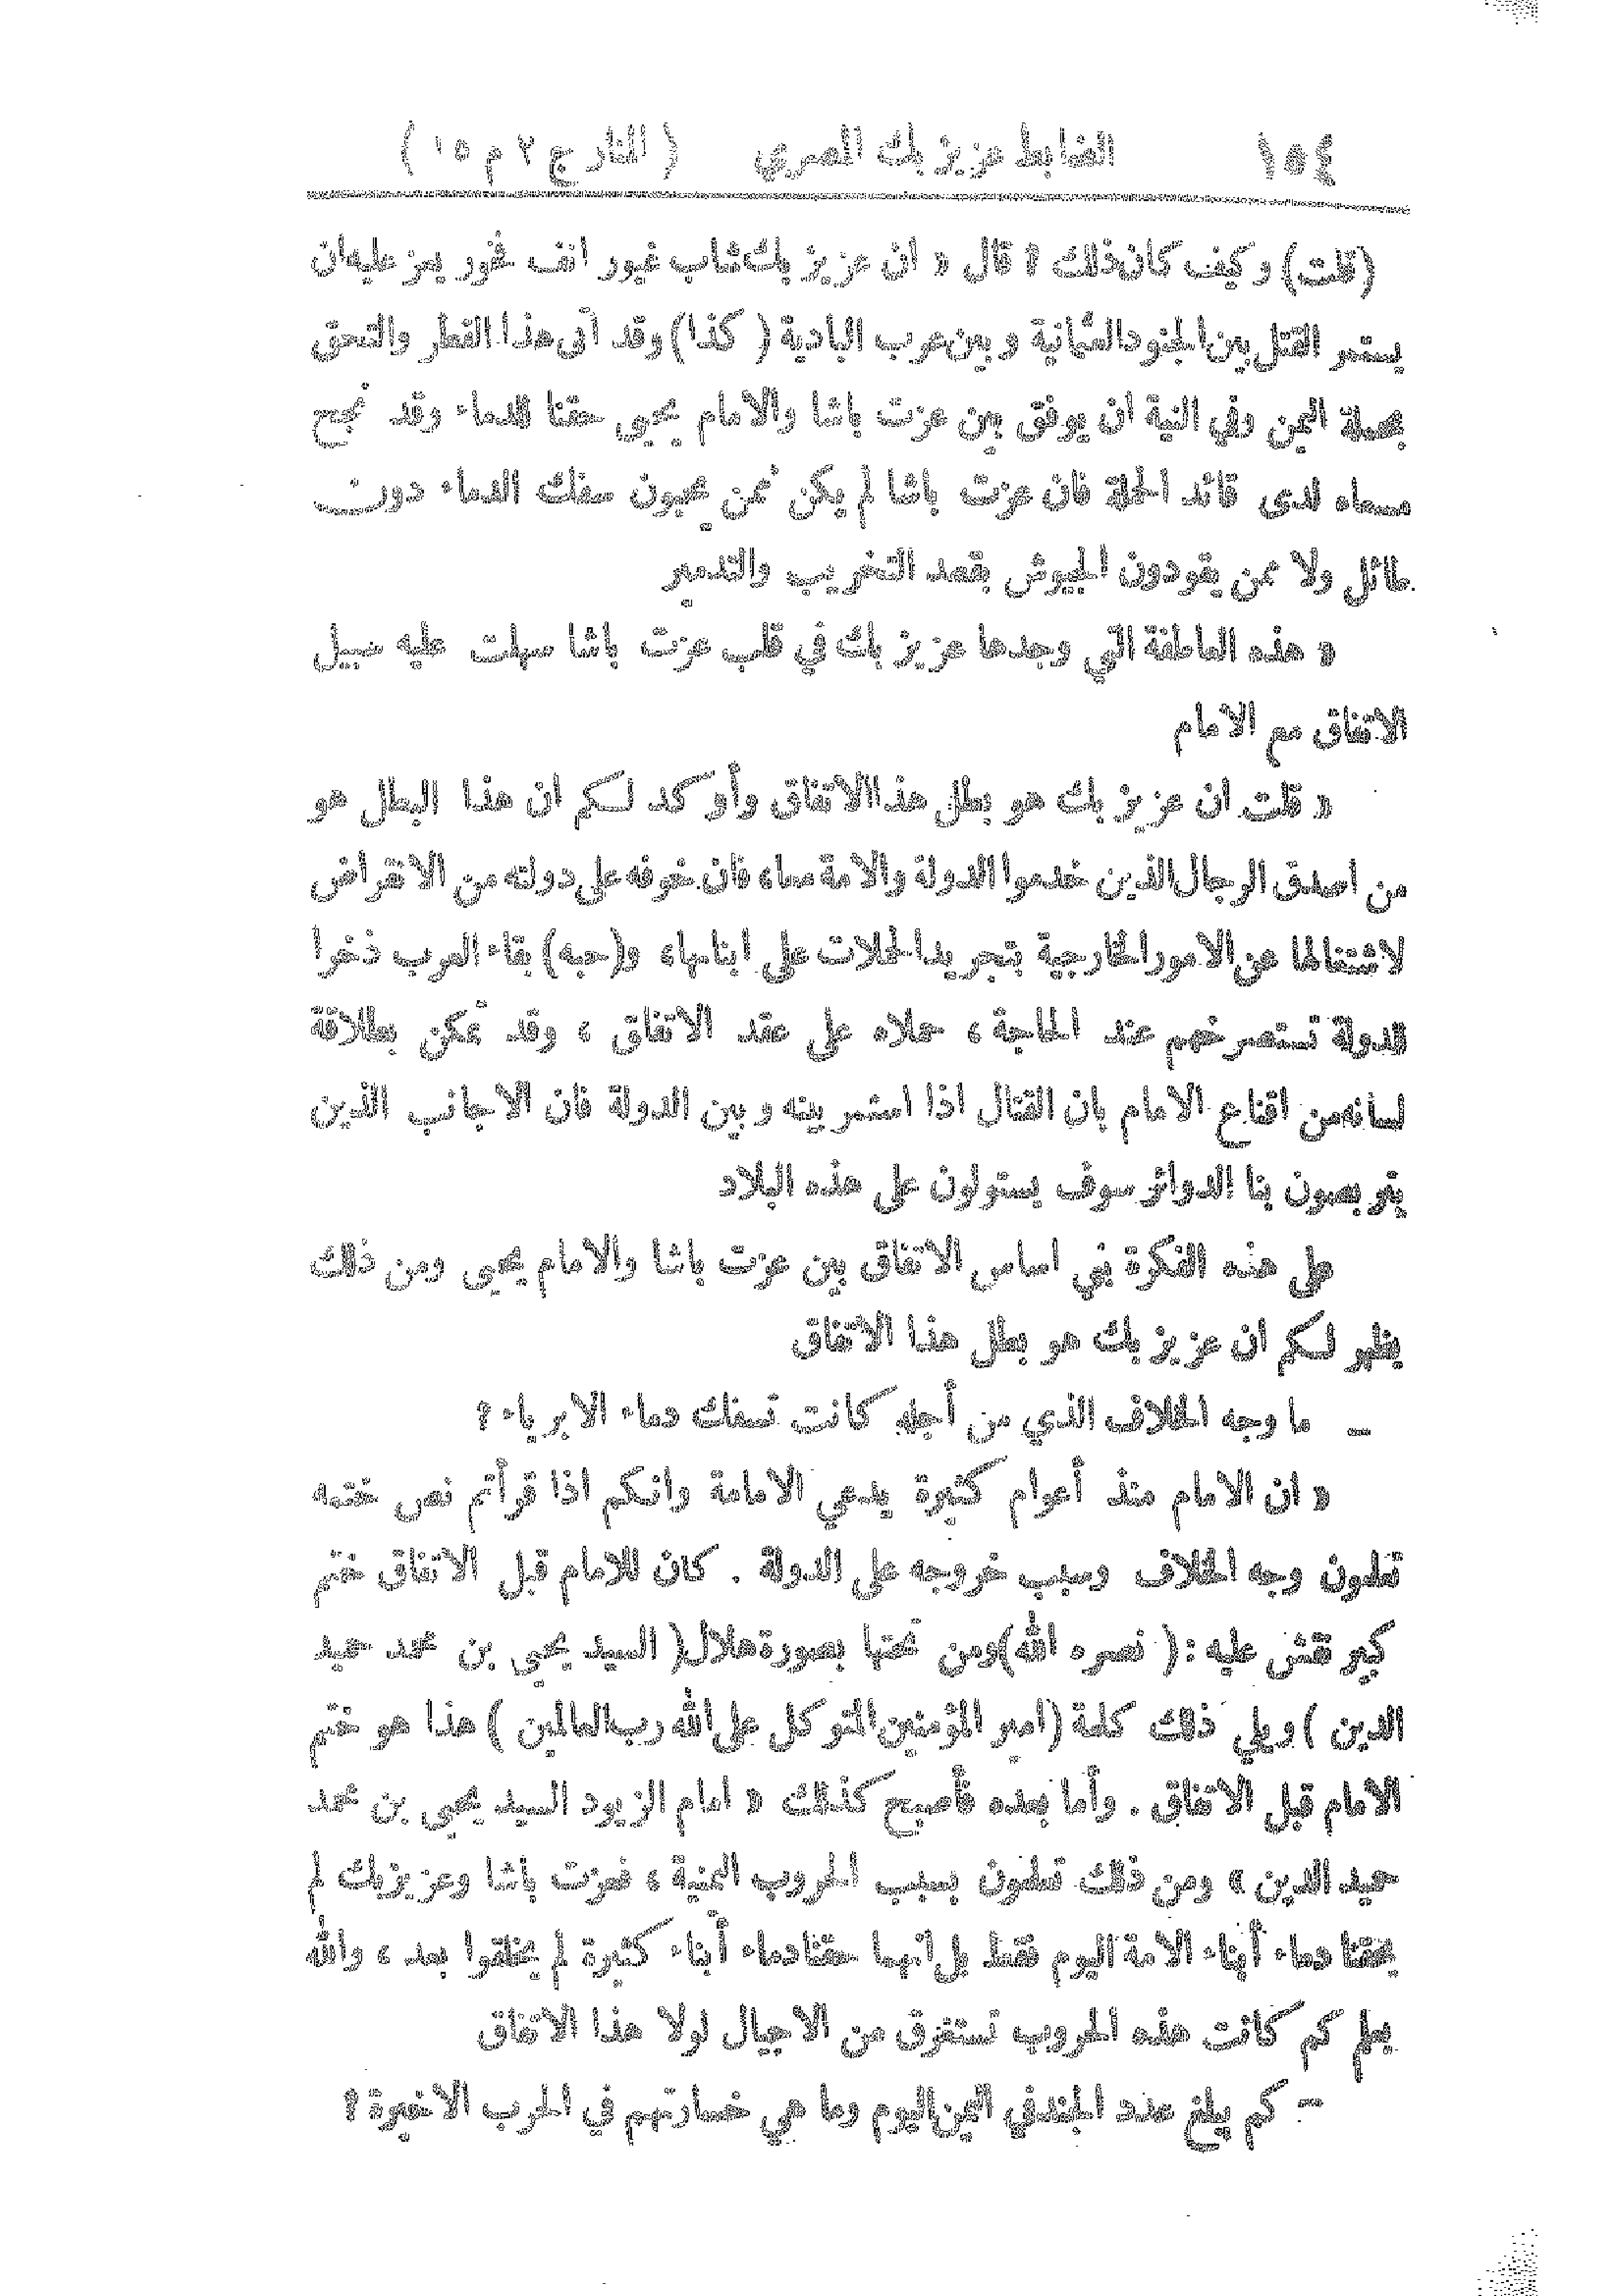 ١٥٤ الضابط عزيز بك المصري ( المنار ج ٢ م ١٥ )
(قلت) وكيف كان ذلك ? قال « ان عزيز بك شاب غيور انف فخور يعز عليه ان
يستمر القتل بين الجنود العثمانية وبين عرب البادية ( كذا ) وقد أتى هذا القطر والتحق
بحملة اليمن وفي النية ان يوفق بين عزت باشا والامام يحيى حقنا للدماء وقد نجح
مسعاه لدى قائد الحملة فان عزت باشا لم يكن ممن يحبون سفك الدماء دون
طائل ولا ممن يقودون الجيوش بقصد التخريب والتدمير
« هذه العاطفة التي وجدها عزيز بك في قلب عزت باشا سهلت عليه سبيل
الاتفاق مع الامام
« قلت ان عزيز بك هو بطل هذا الاتفاق وأوكد لكم ان هذا البطل هو
من اصدق الرجال الذين خدموا الدولة والامة معا، فان خوفه على دولته من الانقراض
لاشتغالها عن الامور الخارجية بتجريد الحملات على ابنائها، و(حبه) بقاء العرب ذخرا
للدولة تستصرخهم عند الحاجة ، حملاه على عقد الاتفاق ، وقد تمكن بطلاقة
لسانه من اقناع الامام بان القتال اذا استمر بينه وبين الدولة فان الاجانب الذين
يتربصون بنا الدوائر سوف يستولون على هذه البلاد
على هذه الفكرة بني اساس الاتفاق بين عزت باشا والامام يحيى ومن ذلك
يظهر لكم ان عزيز بك هو بطل هذا الاتفاق
ــ ما وجه الخلاف الذي من أجله كانت تسفك دماء الابرياء ?
« ان الامام منذ أعوام كثيرة يدعي الامامة وانكم اذا قرأتم نص ختمه
تعلمون وجه الخلاف وسبب خروجه على الدولة . كان للامام قبل الاتفاق ختم
كبير نقش عليه : ( نصره الله) ومن تحتها بصورة هلال ( السيد يحيى بن محمد حميد
الدين ) ويلي ذلك كلمة (امير المؤمنين المتوكل على الله رب العالمين ) هذا هو ختم
الامام قبل الاتفاق . وأما بعده فأصبح كذلك « امام الزيود السيد يحيى بن محمد
حميد الدين » ومن ذلك تعلمون بسبب الحروب اليمنية ، فعزت باشا وعزيز بك لم
يحقنا دماء أبناء الامة اليوم فقط بل انهما حقنا دماء أبناء كثيرة لم يخلقوا بعد ، والله
يعلم كم كانت هذه الحروب تستغرق من الاجيال لولا هذا الاتفاق
ــ كم يبلغ عدد الجند في اليمن اليوم وما هي خسارتهم في الحرب الاخيرة ?